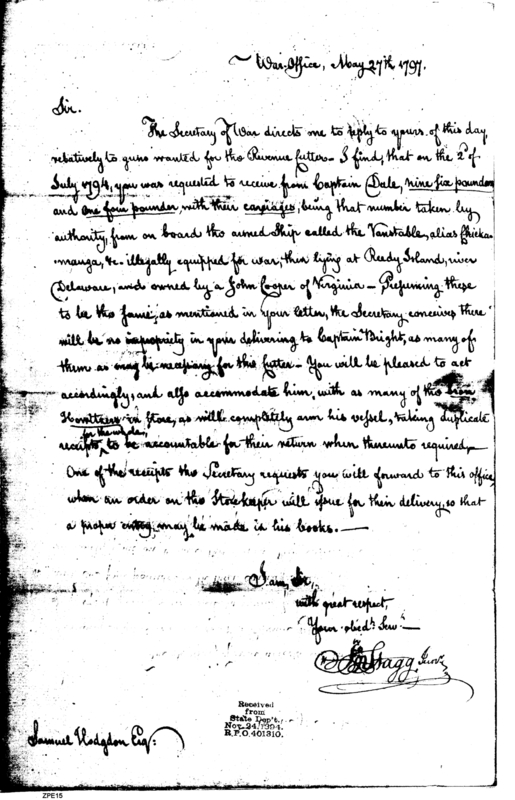 War-Office, May 27th 1797.
Sir.
The Secretary of War directs me to reply to yours of this day,
relatively to guns wanted for the Revenue Cutters — I find, that on the 2d of
July 1794, you was requested to receive from Captain Dale, nine six pounders
and one four pounder, with their carriages, being that number taken by
authority, from on board the armed Ship called the Vanstable, alias Chicka-
manga, &c. illegally equipped for war, then lying at Reedy Island, river
Delaware, and owned by a John Cooper of Virginia — Presuming these
to be the same, as mentioned in your letter, the Secretary conceives there
will be no impropriety in your delivering to Captain Bright, as many of
them as may be necessary for this Cutter — You will be pleased to act
accordingly, and also accommodate him, with as many of the Iron
Howitzers in Store, as will completely arm his vessel, taking duplicate
for the whole,
receipts, to be accountable for their return when thereunto required. —
One of the receipts the Secretary requests you will forward to this office,
when an order on the Storekeeper will issue for their delivery, so that
a proper entry may be made in his books. —
I am, Sir,
with great respect,
Your obedt. Serv.
Jno Stagg Junr.
Samuel Hodgdon Esqr:
Received
from
State Dep't.
Nov. 24, 1894.
R.P.O. 401310.
ZPE15